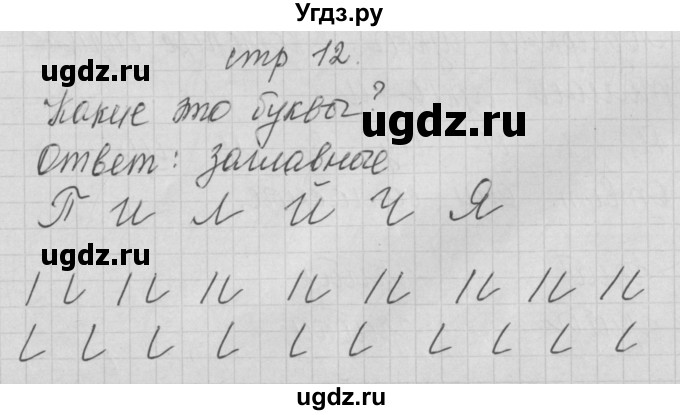 Угдз.ру
стр 12.
Какие это буквы?
Ответ: заглавные
П И Л Й Ч Я
ugdz.ru
ugdz.ru
ugdz.ru
ugdz.ru
ugdz.ru